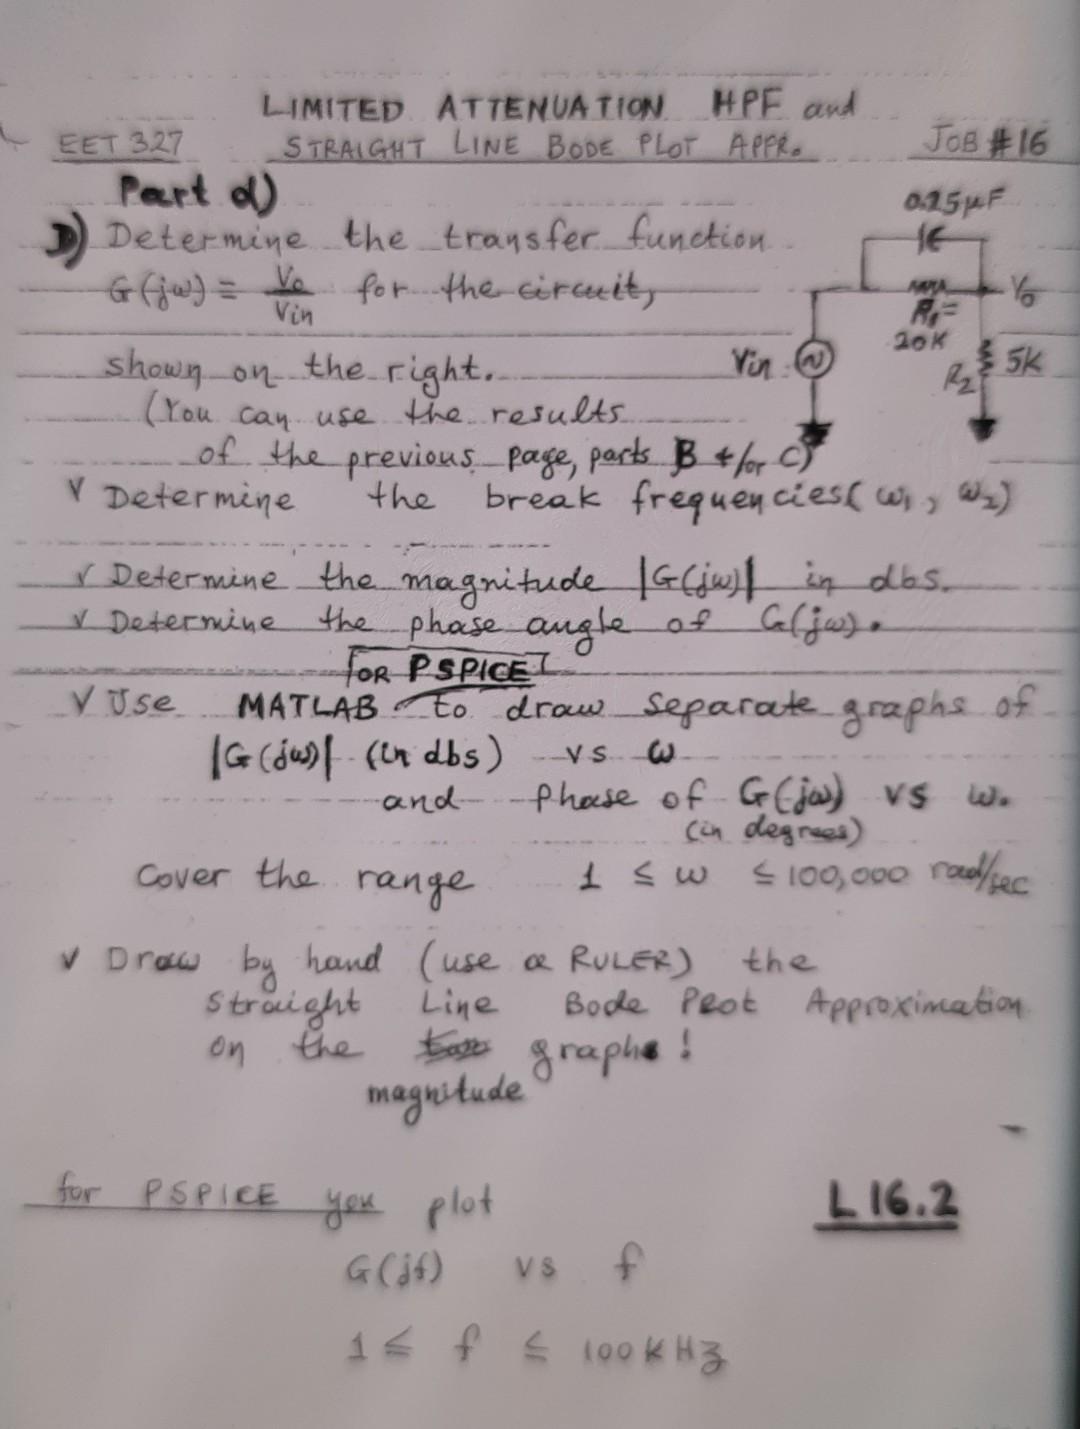 LIMITED ATTENUATION HPF and
EET 327 STRAIGHT LINE BODE PLOT APPR. JOB #16
Part d)
D) Determine the transfer function
G(jω) = Vo/Vin for the circuit,
shown on the right.
(You can use the results
of the previous page, parts B +/or C)
0.25μF
Vo
R1=
20K
Vin
R2
5K
√ Determine the break frequencies (ω1, ω2)
√ Determine the magnitude |G(jω)| in dbs.
√ Determine the phase angle of G(jω).
OR PSPICE
√ Use MATLAB to draw separate graphs of
|G(jω)| (in dbs) vs ω
and Phase of G(jω) vs ω.
(in degrees)
Cover the range 1 ≤ ω ≤ 100,000 rad/sec
√ Draw by hand (use a RULER) the
Straight Line Bode Plot Approximation
on the graph!
magnitude
for PSPICE you plot
L 16.2
G(jf) vs f
1 ≤ f ≤ 100KHz